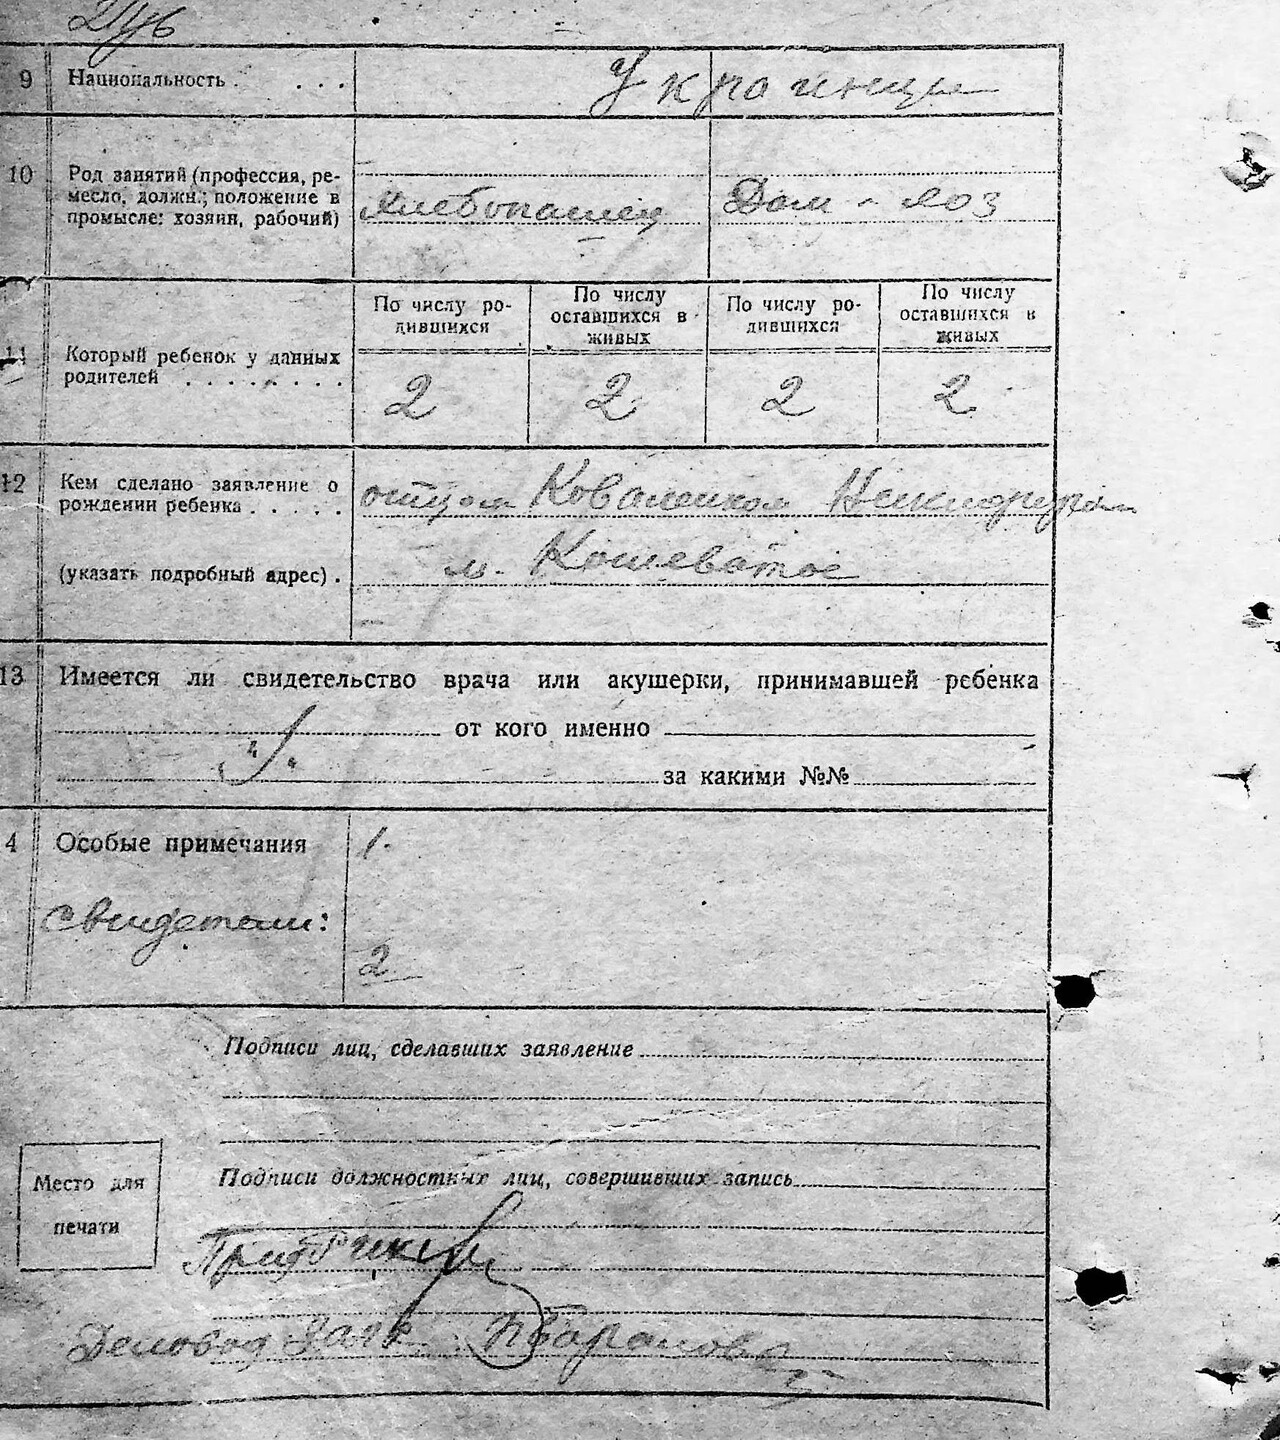 9 Национальность . . . . Украинцы
10 Род занятий (профессия, ре-
месло, должн.; положение в
промысле: хозяин, рабочий)
Хлебопашец Дом - хоз
По числу ро-
дившихся
По числу
оставшихся в
живых
По числу ро-
дившихся
По числу
оставшихся в
живых
11 Который ребенок у данных
родителей . . . . . . . .
2 2 2 2
12 Кем сделано заявление о
рождении ребенка . . . . .
отцом Коваленком
(указать подробный адрес) .
м. Кошеватое
13 Имеется ли свидетельство врача или акушерки, принимавшей ребенка
от кого именно
за какими №№
4 Особые примечания 1.
свидетели:
2
Подписи лиц, сделавших заявление
Подписи должностных лиц, совершивших запись
Место для
печати
Деловод